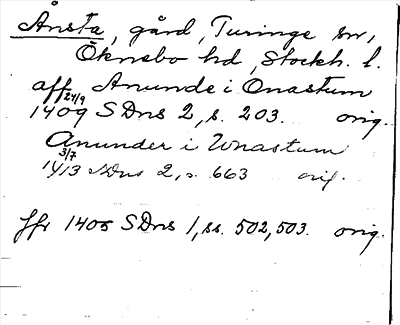 Ånsta, gård, Turinge sn,
Öknebo hd, Stockh. l.
aff Anunde i Onastum
24/9
1409 SDns 2, s. 203. orig.
Anunder i Vnastum
3/7
1413 SDns 2, s. 663 orig.
Jfr 1405 SDns 1, ss. 502, 503. orig.